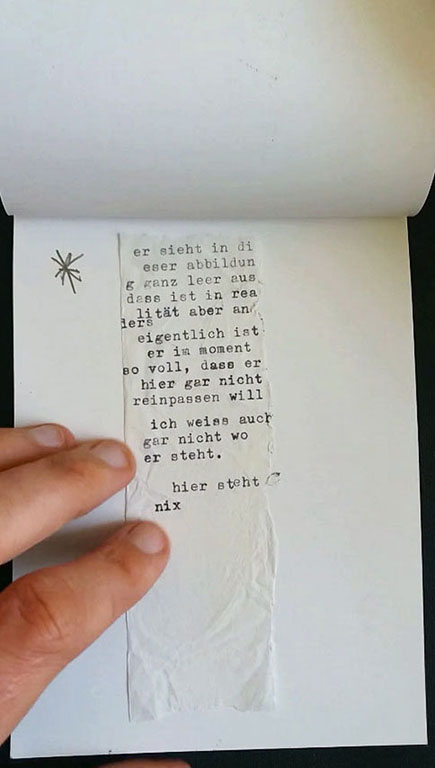 er sieht in di
eser abbildun
g ganz leer aus
dass ist in rea
lität aber an
ders
eigentlich ist
er im moment
so voll, dass er
hier gar nicht
reinpassen will
ich weiss auch
gar nicht wo
er steht.
hier steht
nix